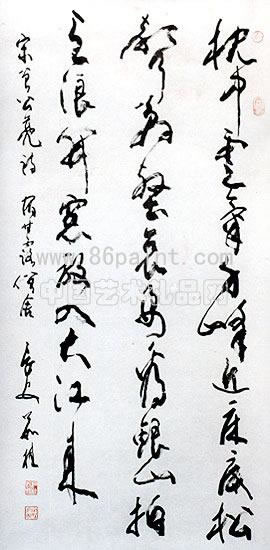 枕中雲氣千峰近床底松
聲萬壑哀要看銀山拍
天浪開窗放入大江来
宋曾公亮诗 宿甘露僧舍 長安 茹桂
www.86paint.com
中国艺术礼品网